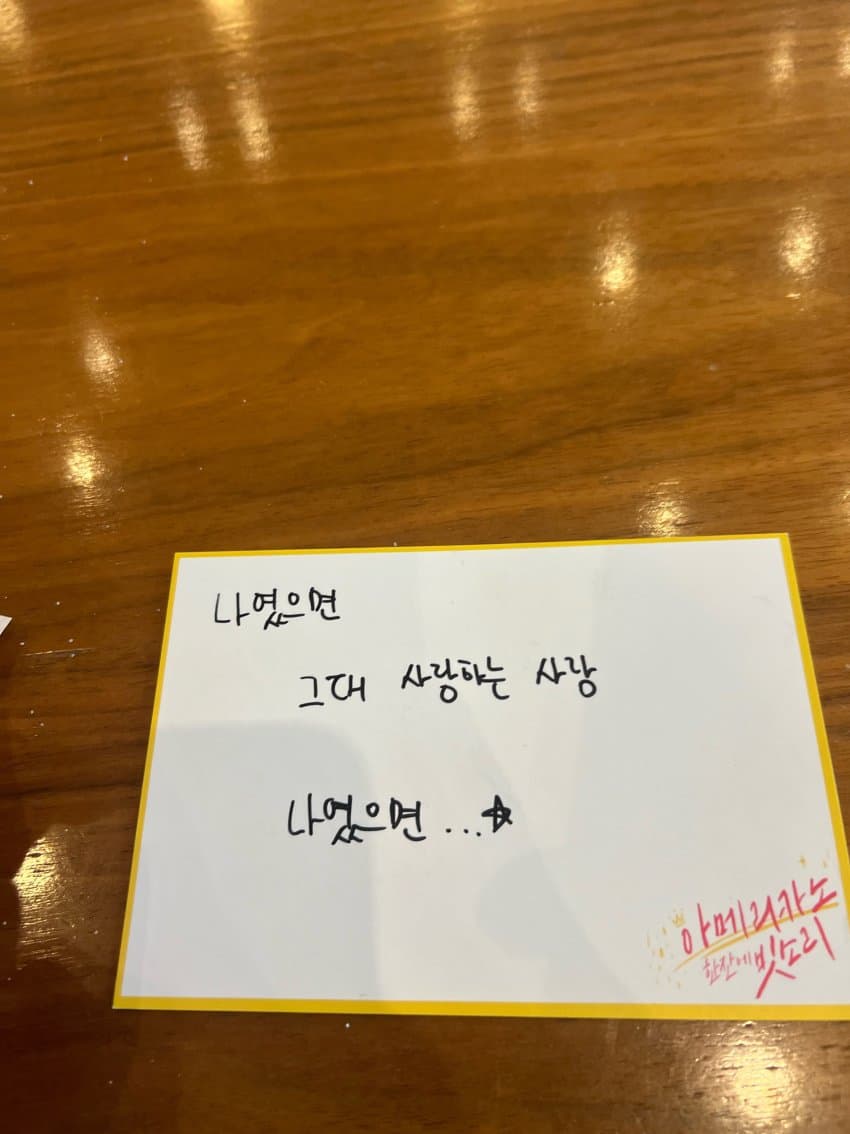 나였으면
그대 사랑하는 사랑
나였으면 ...★
아메리카노
한잔에 빗소리